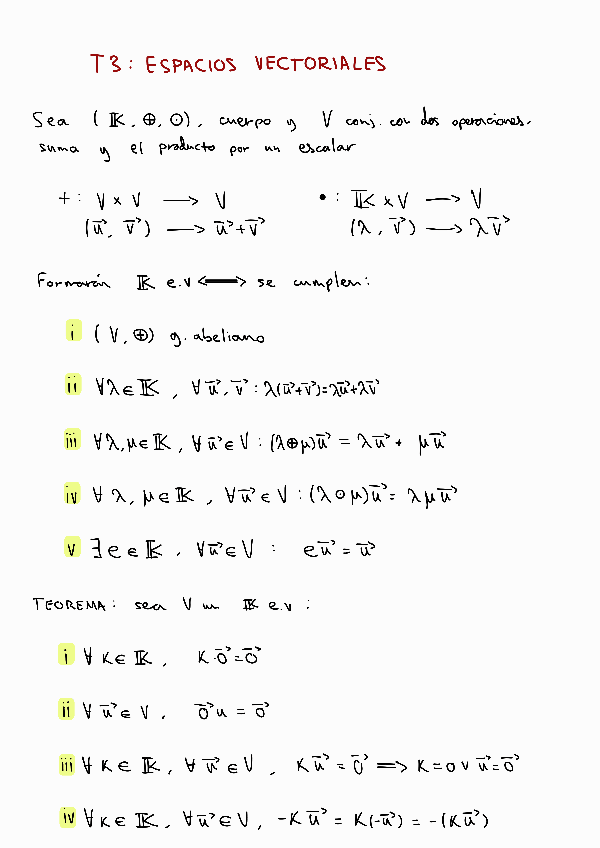 T3: ESPACIOS VECTORIALES
Sea (𝕂, ⊕, ⊙), cuerpo y V conj. con dos operaciones.
suma y el producto por un escalar
+ : V x V → V • : 𝕂 x V → V
(u⃗, v⃗) → u⃗+v⃗ (λ, v⃗) → λv⃗
Formarán 𝕂 e.v ⟺ se cumplen:
i (V, ⊕) g. abeliano
ii ∀λ∈𝕂, ∀u⃗, v⃗ : λ(u⃗+v⃗)=λu⃗+λv⃗
iii ∀λ,μ∈𝕂, ∀u⃗∈V : (λ⊕μ)u⃗ = λu⃗ + μu⃗
iv ∀λ, μ∈𝕂, ∀u⃗∈V : (λ⊙μ)u⃗ = λμu⃗
v ∃e∈𝕂, ∀u⃗∈V : eu⃗ = u⃗
TEOREMA: sea V un 𝕂 e.v :
i ∀K∈𝕂, K·0⃗=0⃗
ii ∀u⃗∈V, 0⃗u = 0⃗
iii ∀K∈𝕂, ∀u⃗∈V, Ku⃗ = 0⃗ ⟹ K=0 ∨ u⃗=0⃗
iv ∀K∈𝕂, ∀u⃗∈V, -Ku⃗ = K(-u⃗) = -(Ku⃗)